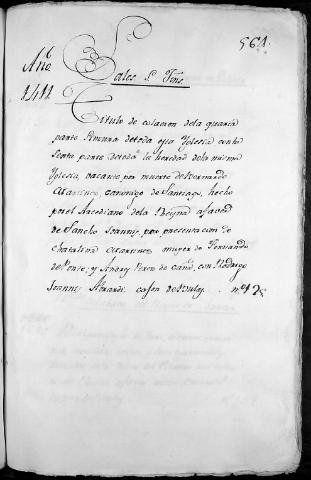 561.
Año 6
1411
Bales S.n Tme
Titulo de colacion dela quarta
parte sinecura de toda esta Yglesia con la
sexta parte de toda la heredad dela misma
Yglesia, vacante por muerte de Bernardo
Martinez, canonigo de Santiago, hecho
por el Arcediano dela Reyna a favor
de Sancho Joannis, por presentacion de
Chatalina Martines muger de Fernando
de Ponte; y Andrey Perez de con Rodrigo
Joannis caxon de n.o